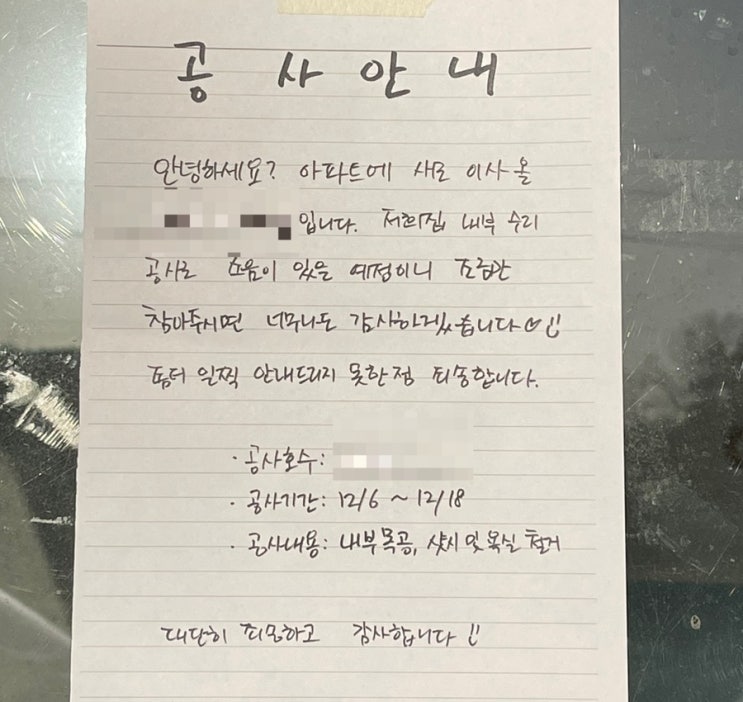 공사안내
안녕하세요? 아파트에 새로 이사 올
입니다. 저희집 내부 수리
공사로 소음이 있을 예정이니 조금만
참아주시면 너무나도 감사하겠습니다♡
좀더 일찍 안내드리지 못한점 죄송합니다.
· 공사호수:
· 공사기간: 12/6 ~ 12/18
· 공사내용: 내부목공, 샷시 및 욕실 철거
대단히 죄송하고 감사합니다